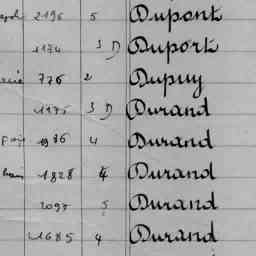 2196 5 Dupont
1174 3 D Duport
776 2 Dupuy
1175 3 D Durand
986 4 Durand
1828 4 Durand
2097 5 Durand
1685 4 Durand